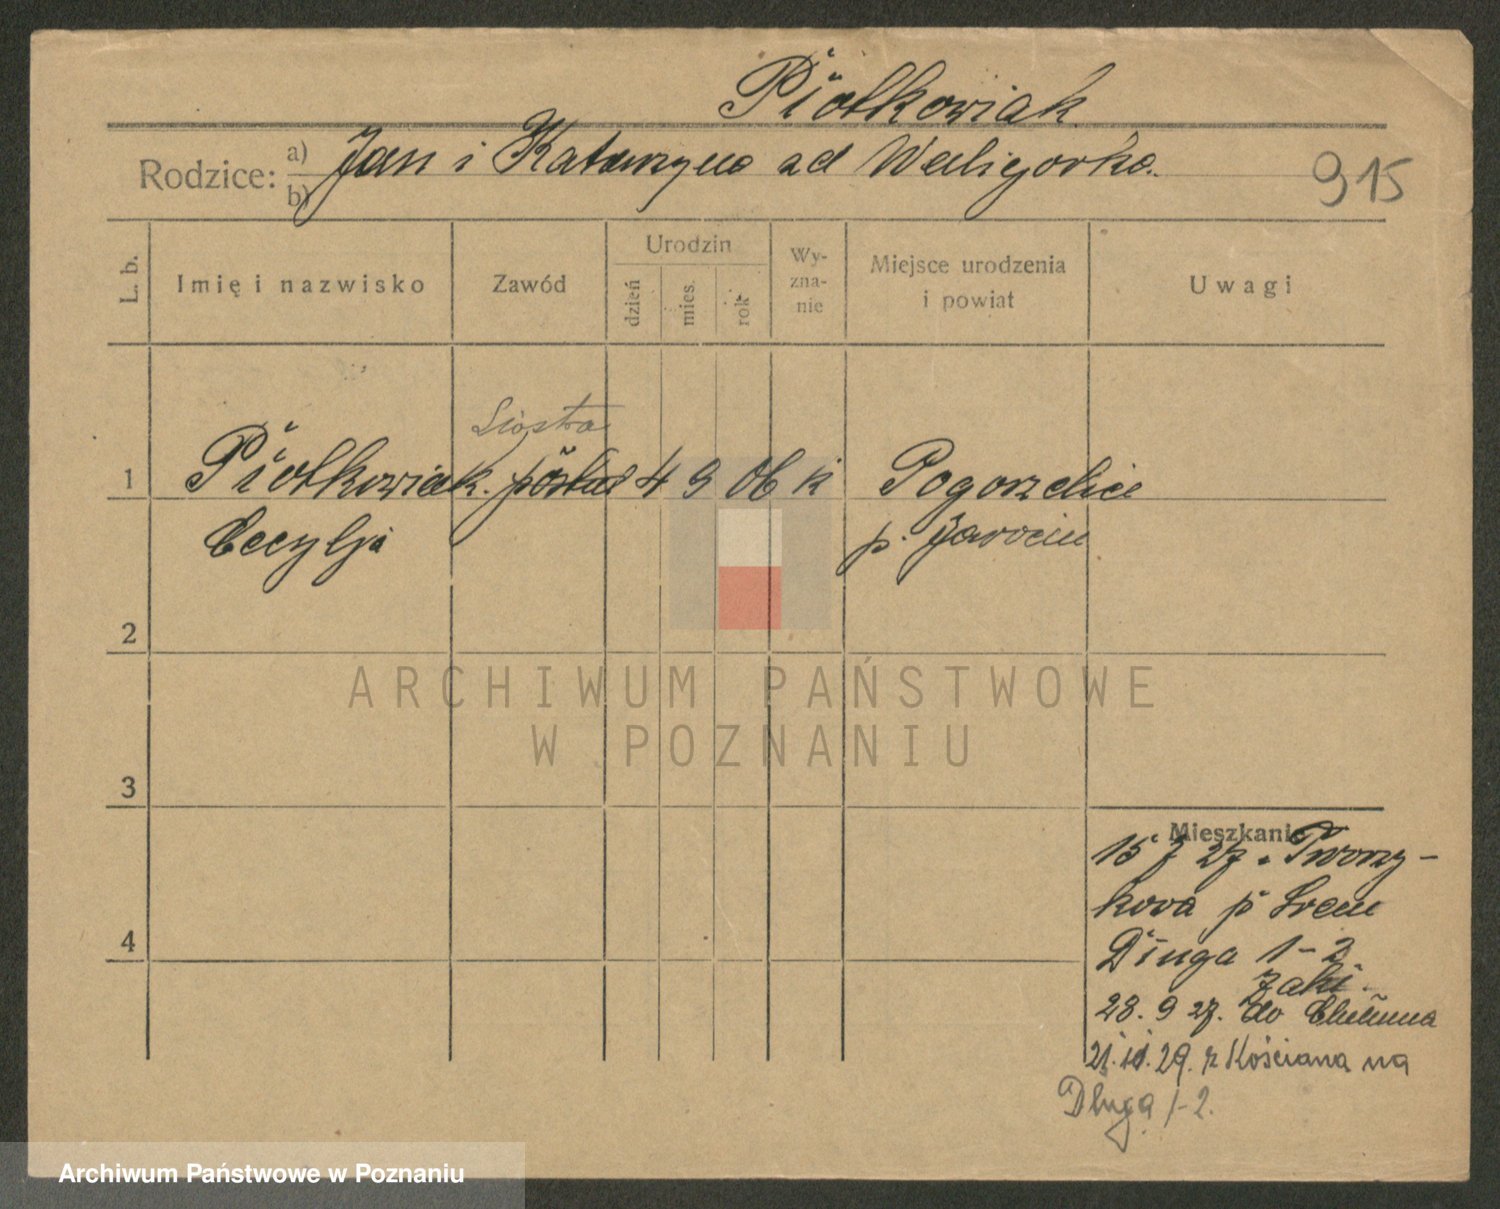 Piotkowiak
915
Rodzice: a) Jan i Katarzyna ad Waligorka.
b)
L. b. Imię i nazwisko Zawód Urodzin dzień mies. rok Wyznanie Miejsce urodzenia i powiat Uwagi
Siostra
1 Piotkowiak. 4 9 06 k Pogorzelice
Cecylja p. Jarocin
2
ARCHIWUM PAŃSTWOWE
W POZNANIU
3
Mieszkanie
15 7 27. Tworzy-
kowa p Srem
4
Dluga 1-2
28. 9 27. do
21. 11. 29. z Kościana na
Długą 1-2.
Archiwum Państwowe w Poznaniu